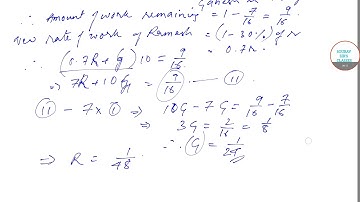 Ganesh
∴ Amount of work remaining = 1 - 7/16 = 9/16
New rate of work of Ramesh = (1-30%) of R
= 0.7R
∴ (0.7R + G) 10 = 9/16
⇒ 7R + 10G = 9/16 — (II)
(II) - 7×(I) ⇒ 10G - 7G = 9/16 - 7/16
⇒ 3G = 2/16 = 1/8
⇒ R = 1/48 ∴ G = 1/24